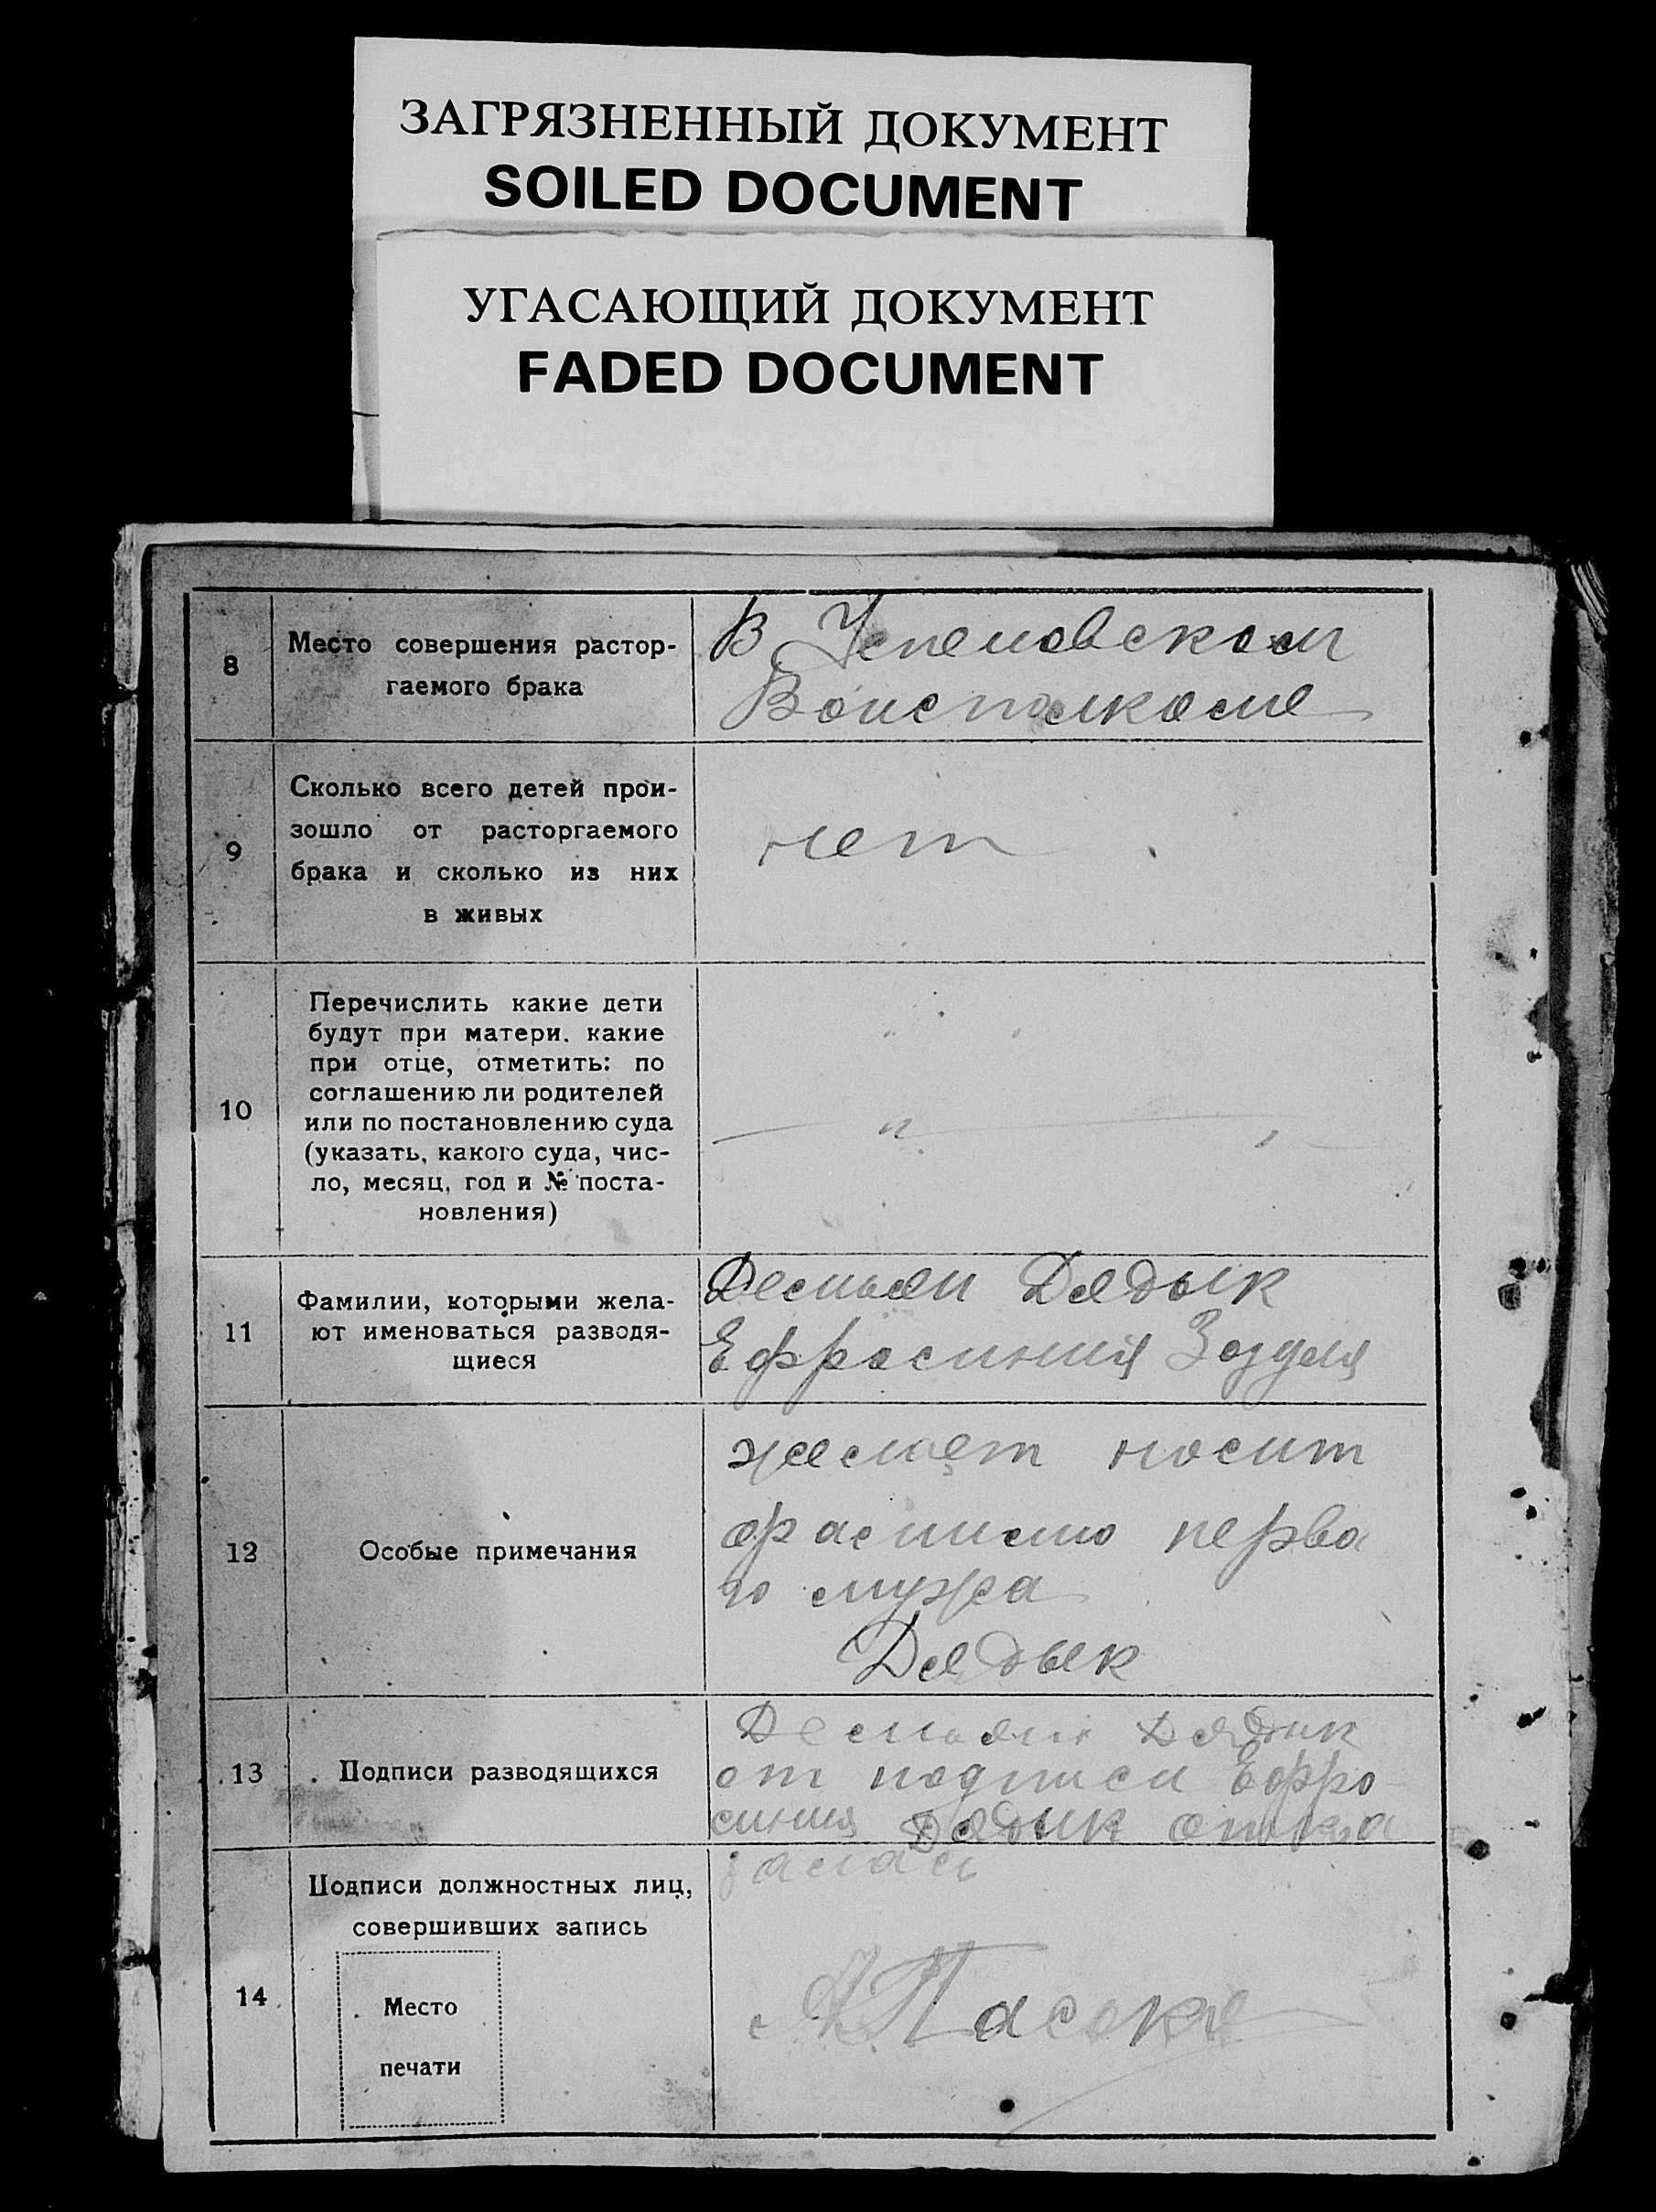 ЗАГРЯЗНЕННЫЙ ДОКУМЕНТ
SOILED DOCUMENT
УГАСАЮЩИЙ ДОКУМЕНТ
FADED DOCUMENT
8
Место совершения растор-
гаемого брака
В Успеновском
Воисполкоме
9
Сколько всего детей прои-
зошло от расторгаемого
брака и сколько из них
в живых
нет
10
Перечислить какие дети
будут при матери, какие
при отце, отметить: по
соглашению ли родителей
или по постановлению суда
(указать, какого суда, чис-
ло, месяц, год и № поста-
новления)
— " —
11
Фамилии, которыми жела-
ют именоваться разводя-
щиеся
Демьян Дядык
Ефросиния Зозуля
12
Особые примечания
желает носит
фасмилю перва
го мужа
Дядык
13
Подписи разводящихся
Демьян Дядик
от подписи Ефро
синия Дядик отка
залась
14
Подписи должностных лиц,
совершивших запись
Место
печати